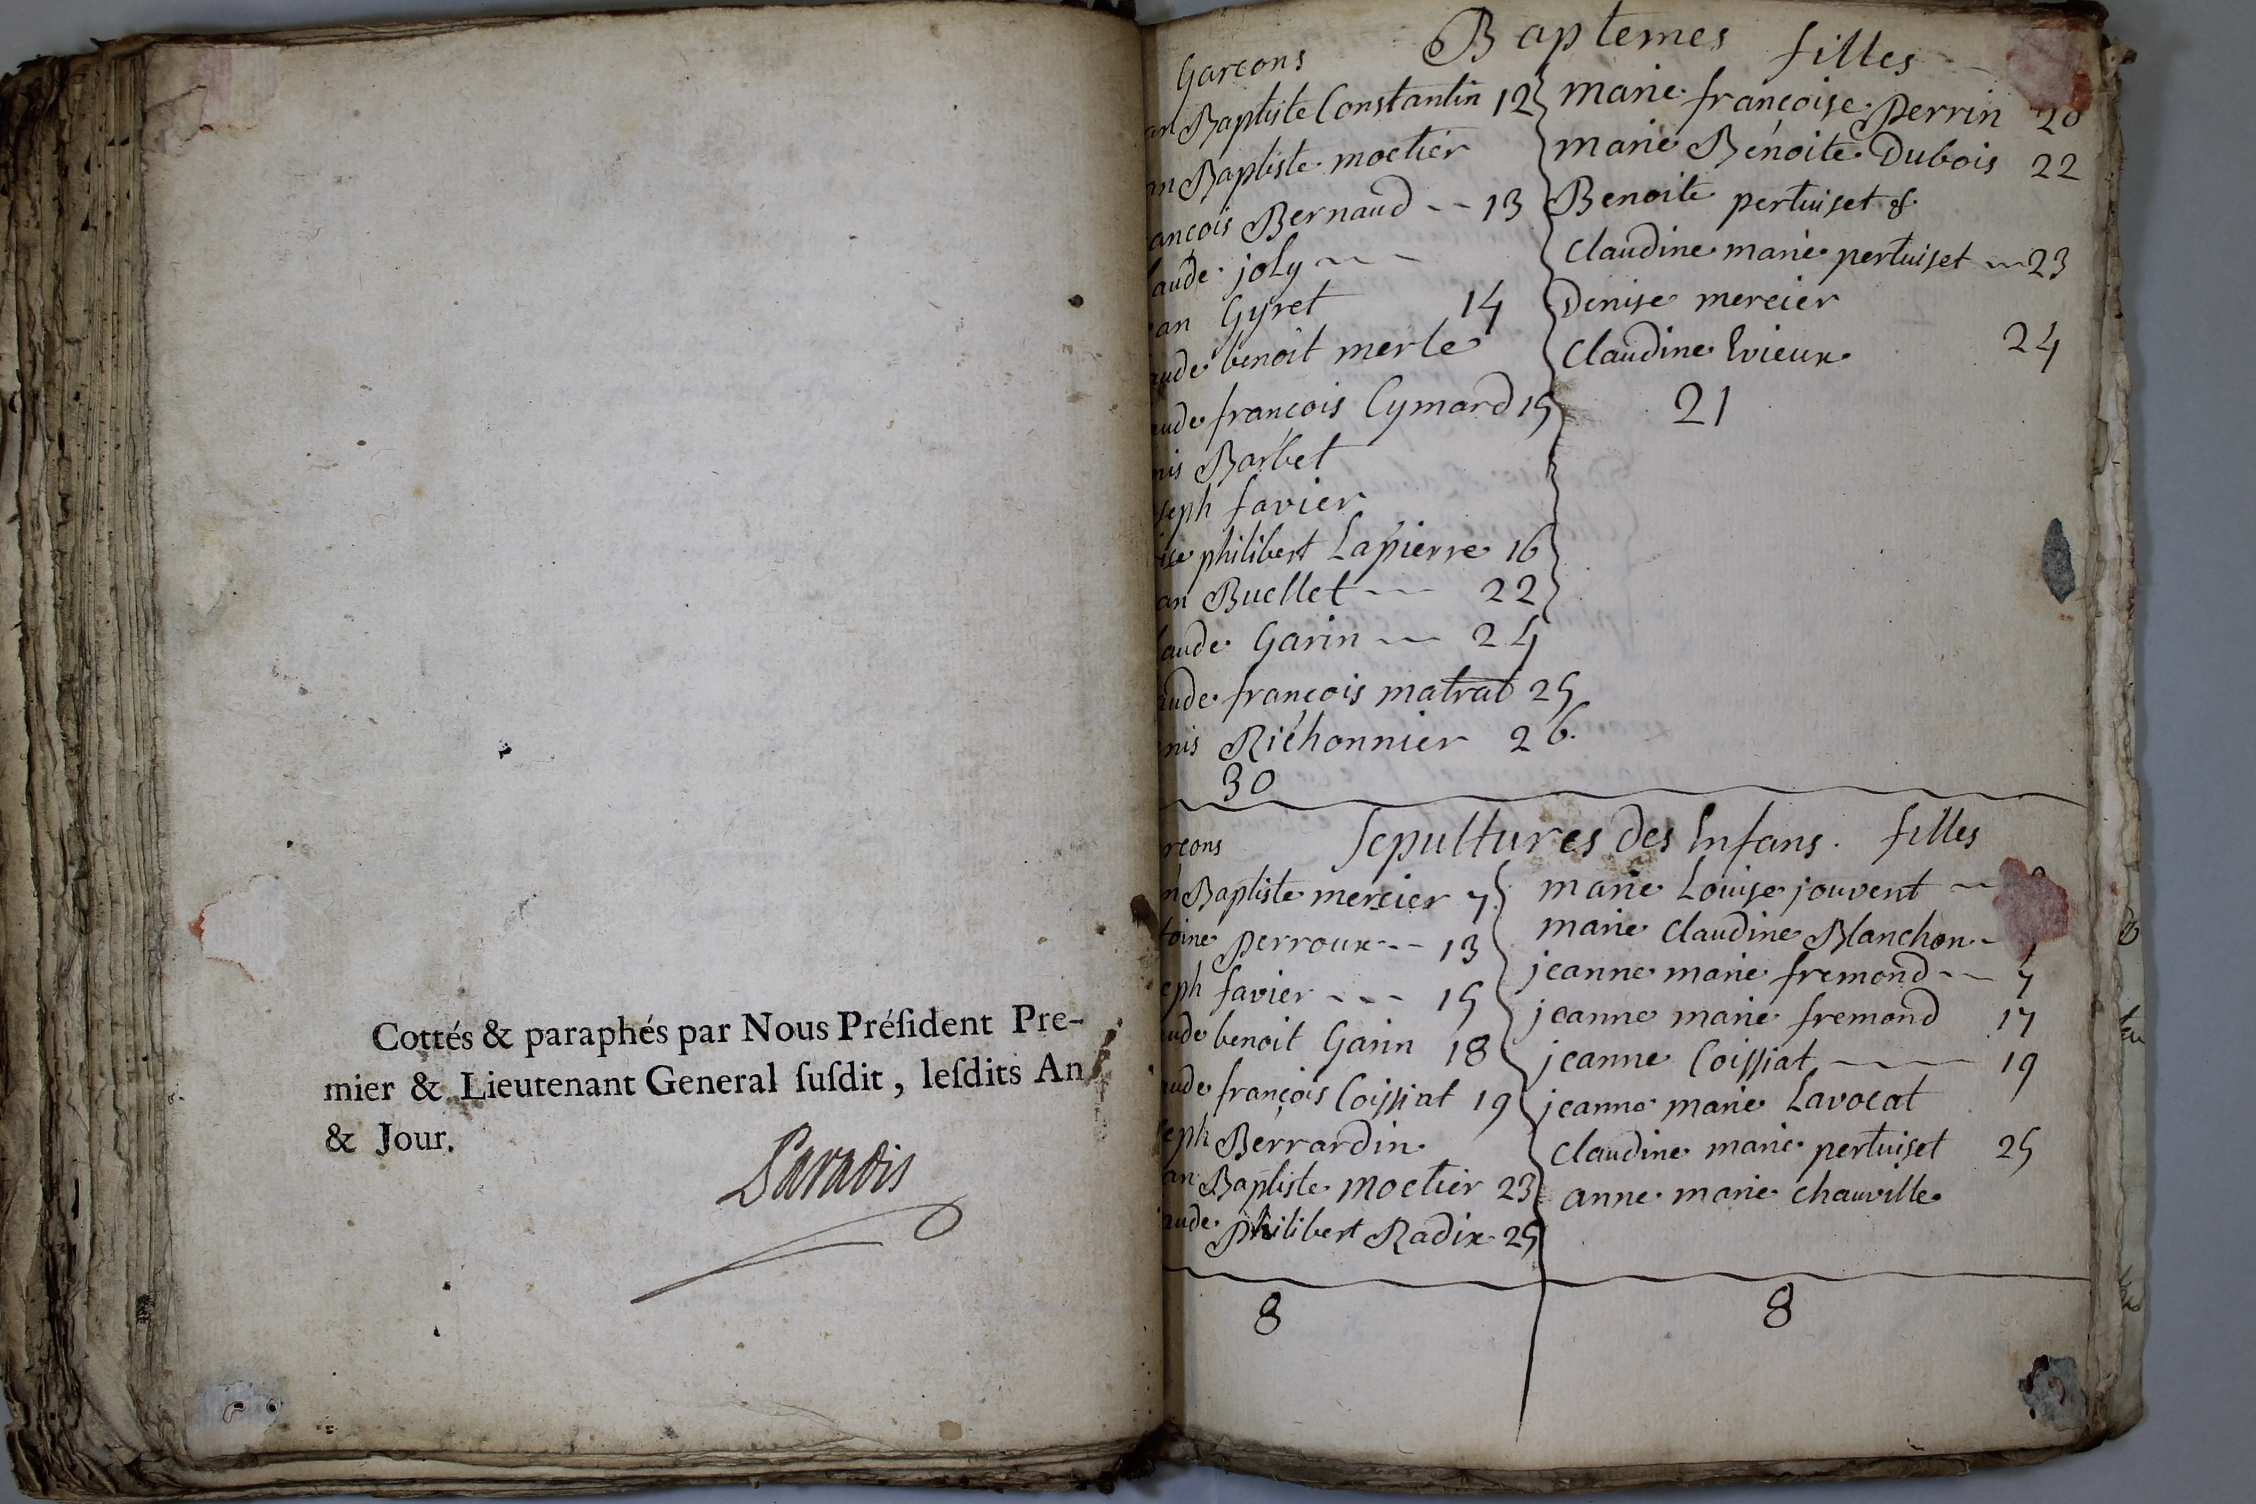 Cottés & paraphés par Nous Préſident Pre-
mier & Lieutenant General ſuſdit, leſdits An
& Jour.
Paradis
Baptemes
Garcons
an Baptiste Constantin 12
an Baptiste moctier
ancois Bernaud -- 13
aude joly
an Gyret 14
aude benoit merle
aude francois Cymard 15
nis Barbet
seph favier
philibert Lapierre 16
an Buellet 22
aude Garin 24
aude françois matrat 25
nis Richonnier 26.
30
filles
marie françoise Perrin 20
marie Benoite Dubois 22
Benoite pertuiset &
Claudine marie pertuiset 23
Denise mercier
Claudine Evieux 24
21
Sepultures des Enfans.
rcons
n Baptiste mercier 7
toine Perroux -- 13
eph favier --- 15
ude benoit Garin 18
aude françois Coissiat 19
seph Berrardin
an Baptiste moctier 23
aude philibert Radix 25
8
filles
marie Louise jouvent
marie Claudine Blanchon
jeanne marie fremond -- 7
jeanne marie fremond 17
jeanne Coissiat 19
jeanne marie Lavocat
Claudine marie pertuiset 25
anne marie chauville
8